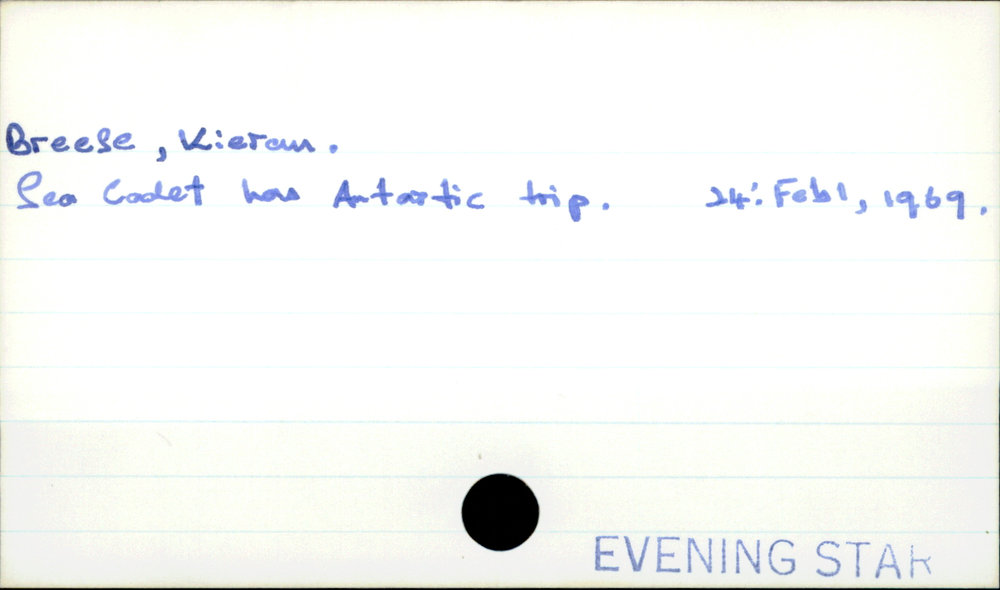 Breese, Kieran.
Sea Cadet has Antartic trip. 24: Feb1, 1969.
EVENING STAR